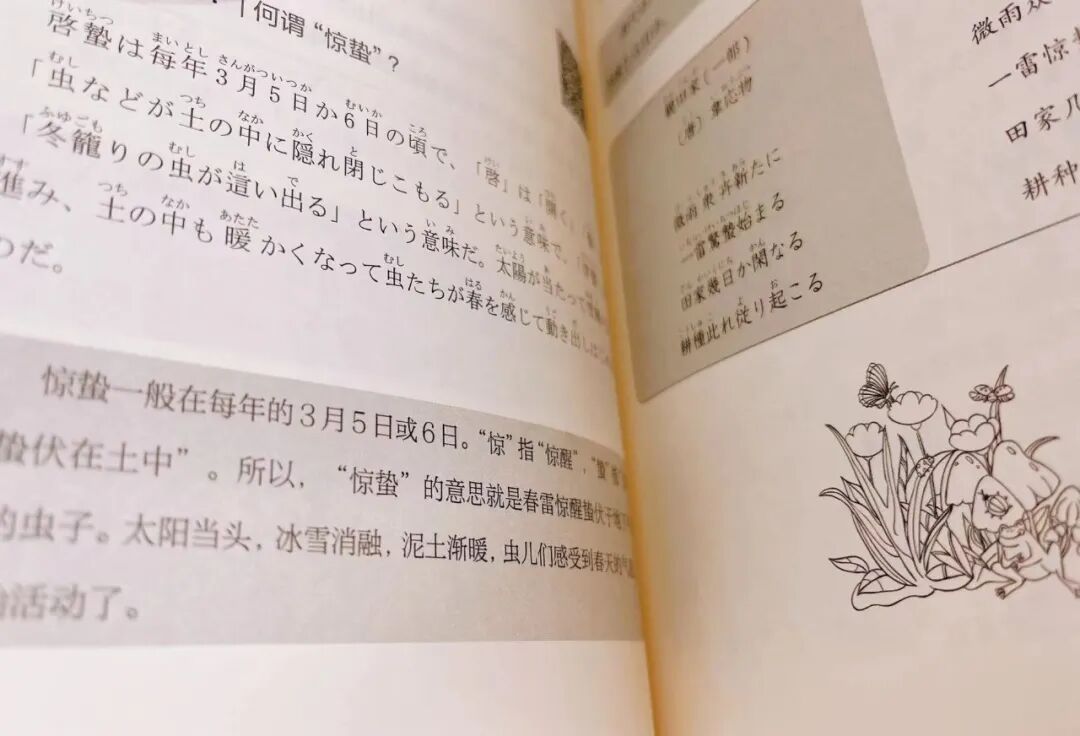 何谓“惊蛰”？
啓蟄は毎年3月5日か6日の頃で、「啓」は「開く」
「虫などが土の中に隠れ閉じこもる」という意味で、
「冬籠りの虫が這い出る」という意味だ。太陽が当たって
進み、土の中も暖かくなって虫たちが春を感じて動き出し
のだ。
惊蛰一般在每年的3月5日或6日。“惊”指“惊醒”，
蛰伏在土中”。所以，“惊蛰”的意思就是春雷惊醒蛰伏于
的虫子。太阳当头，冰雪消融，泥土渐暖，虫儿们感受到春天的气
活动了。
観田家（一部）
（唐）韋応物
微雨衆卉新たに
一雷驚蟄始まる
田家幾日か閑なる
耕種此れ従り起こる
微雨众
一雷惊
田家几
耕种